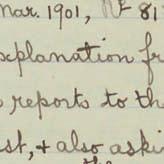 Mar. 1901, Nº 81
explanation fr
reports to th
st, + also aske
the